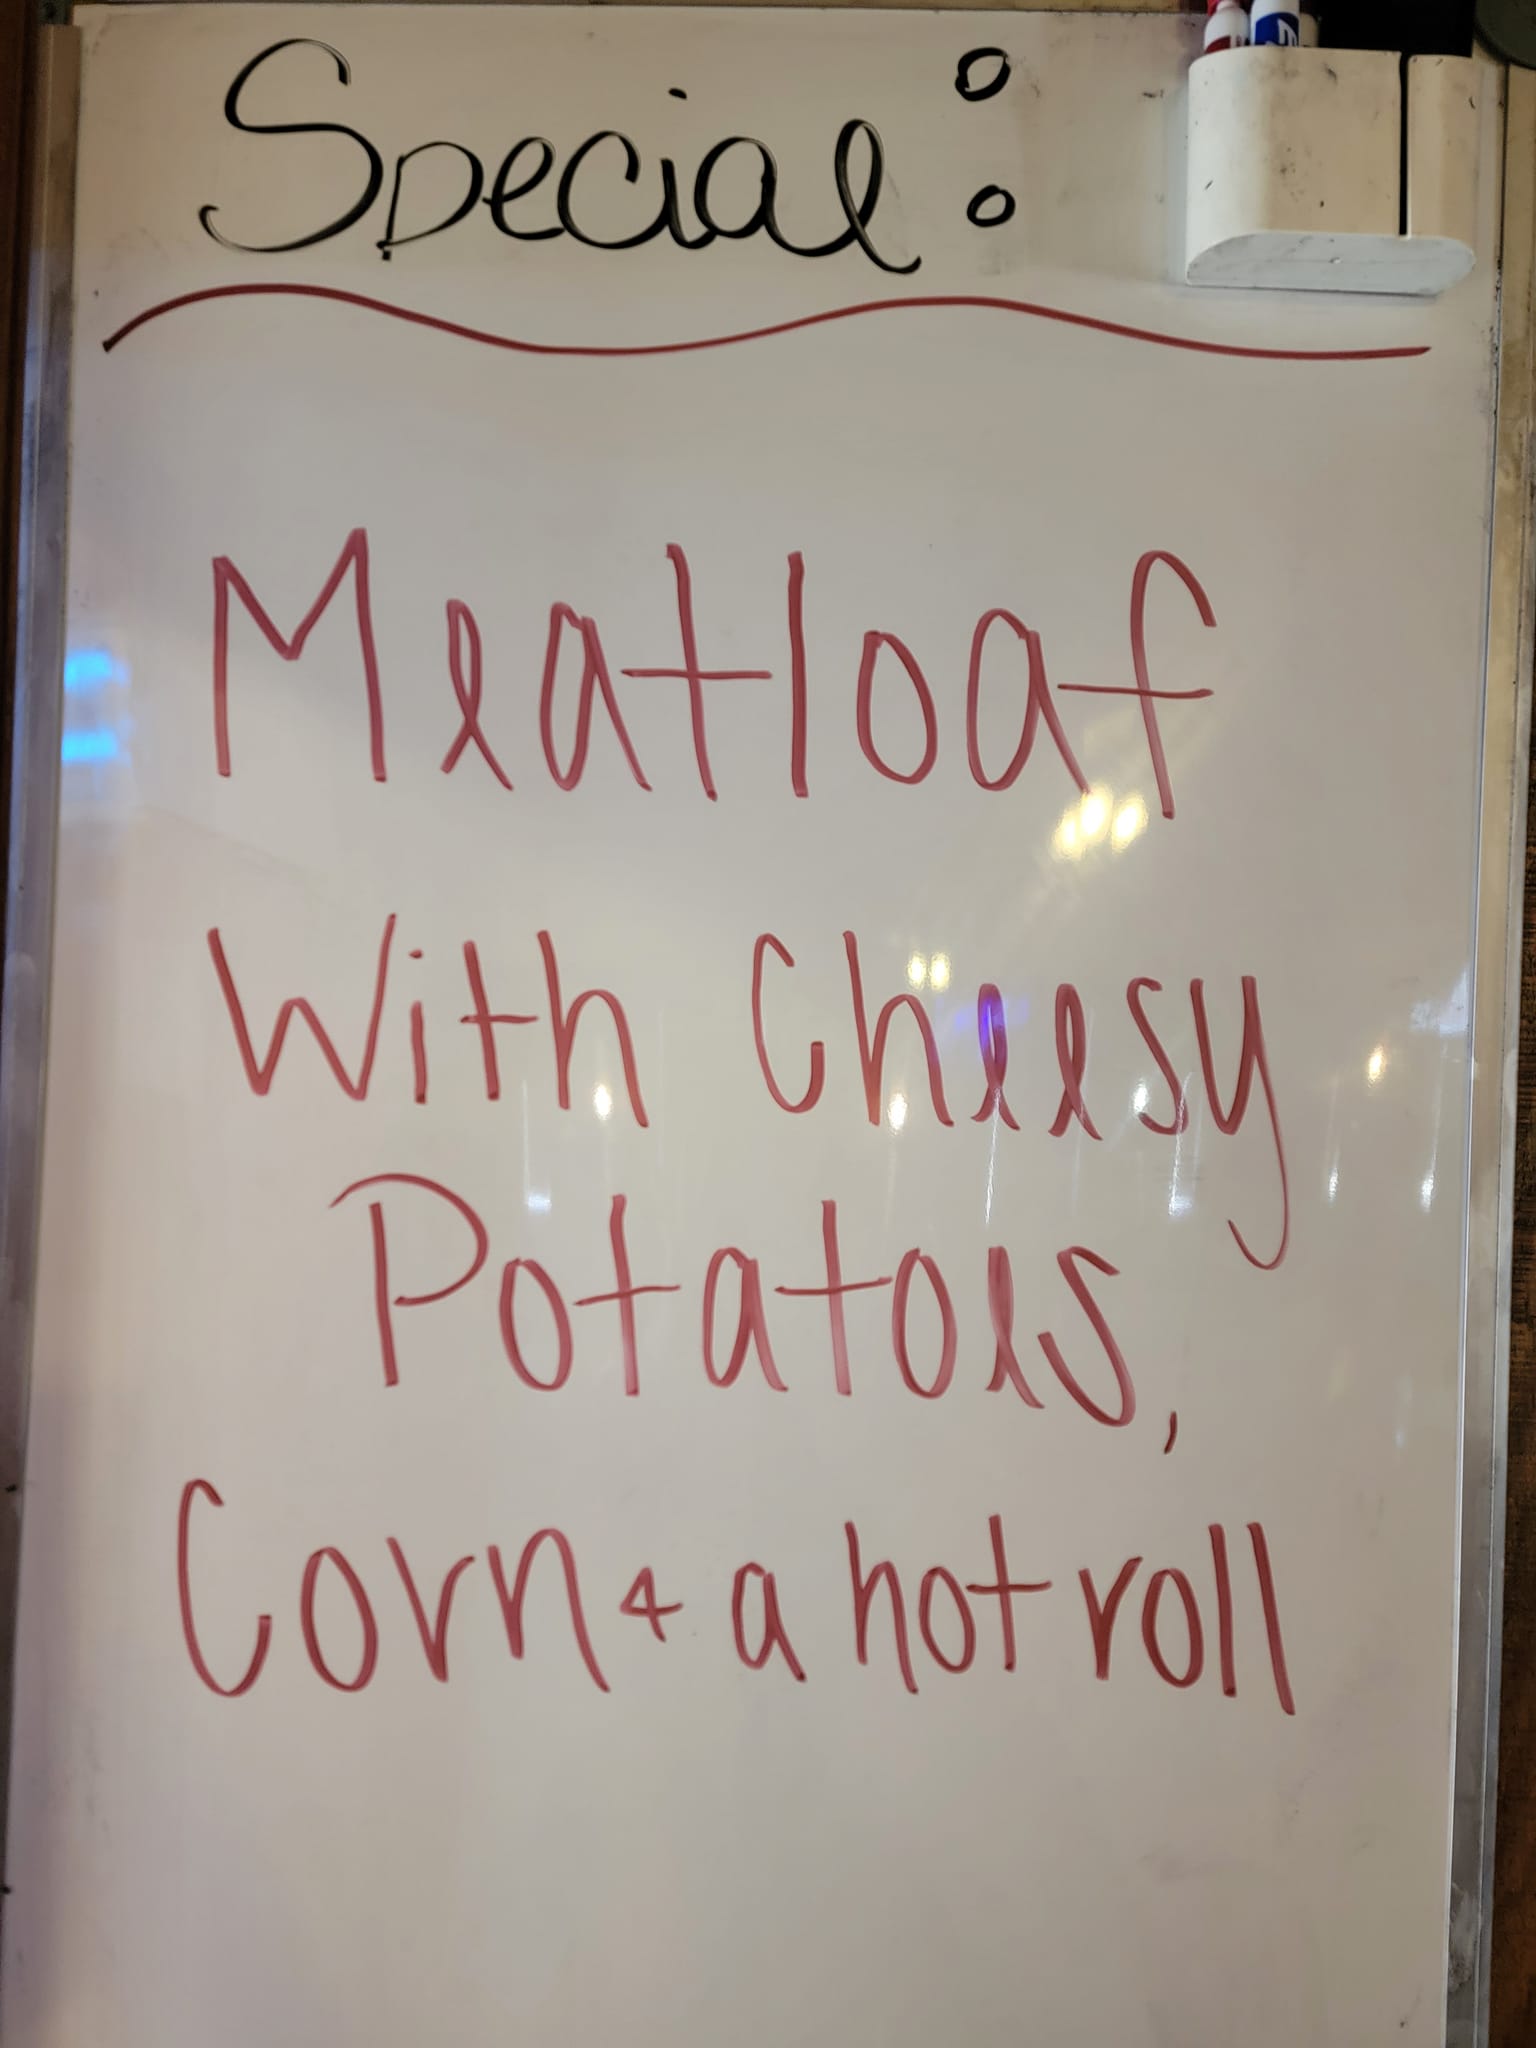 Special:
Meatloaf
With Cheesy
Potatoes,
Corn & a hot roll